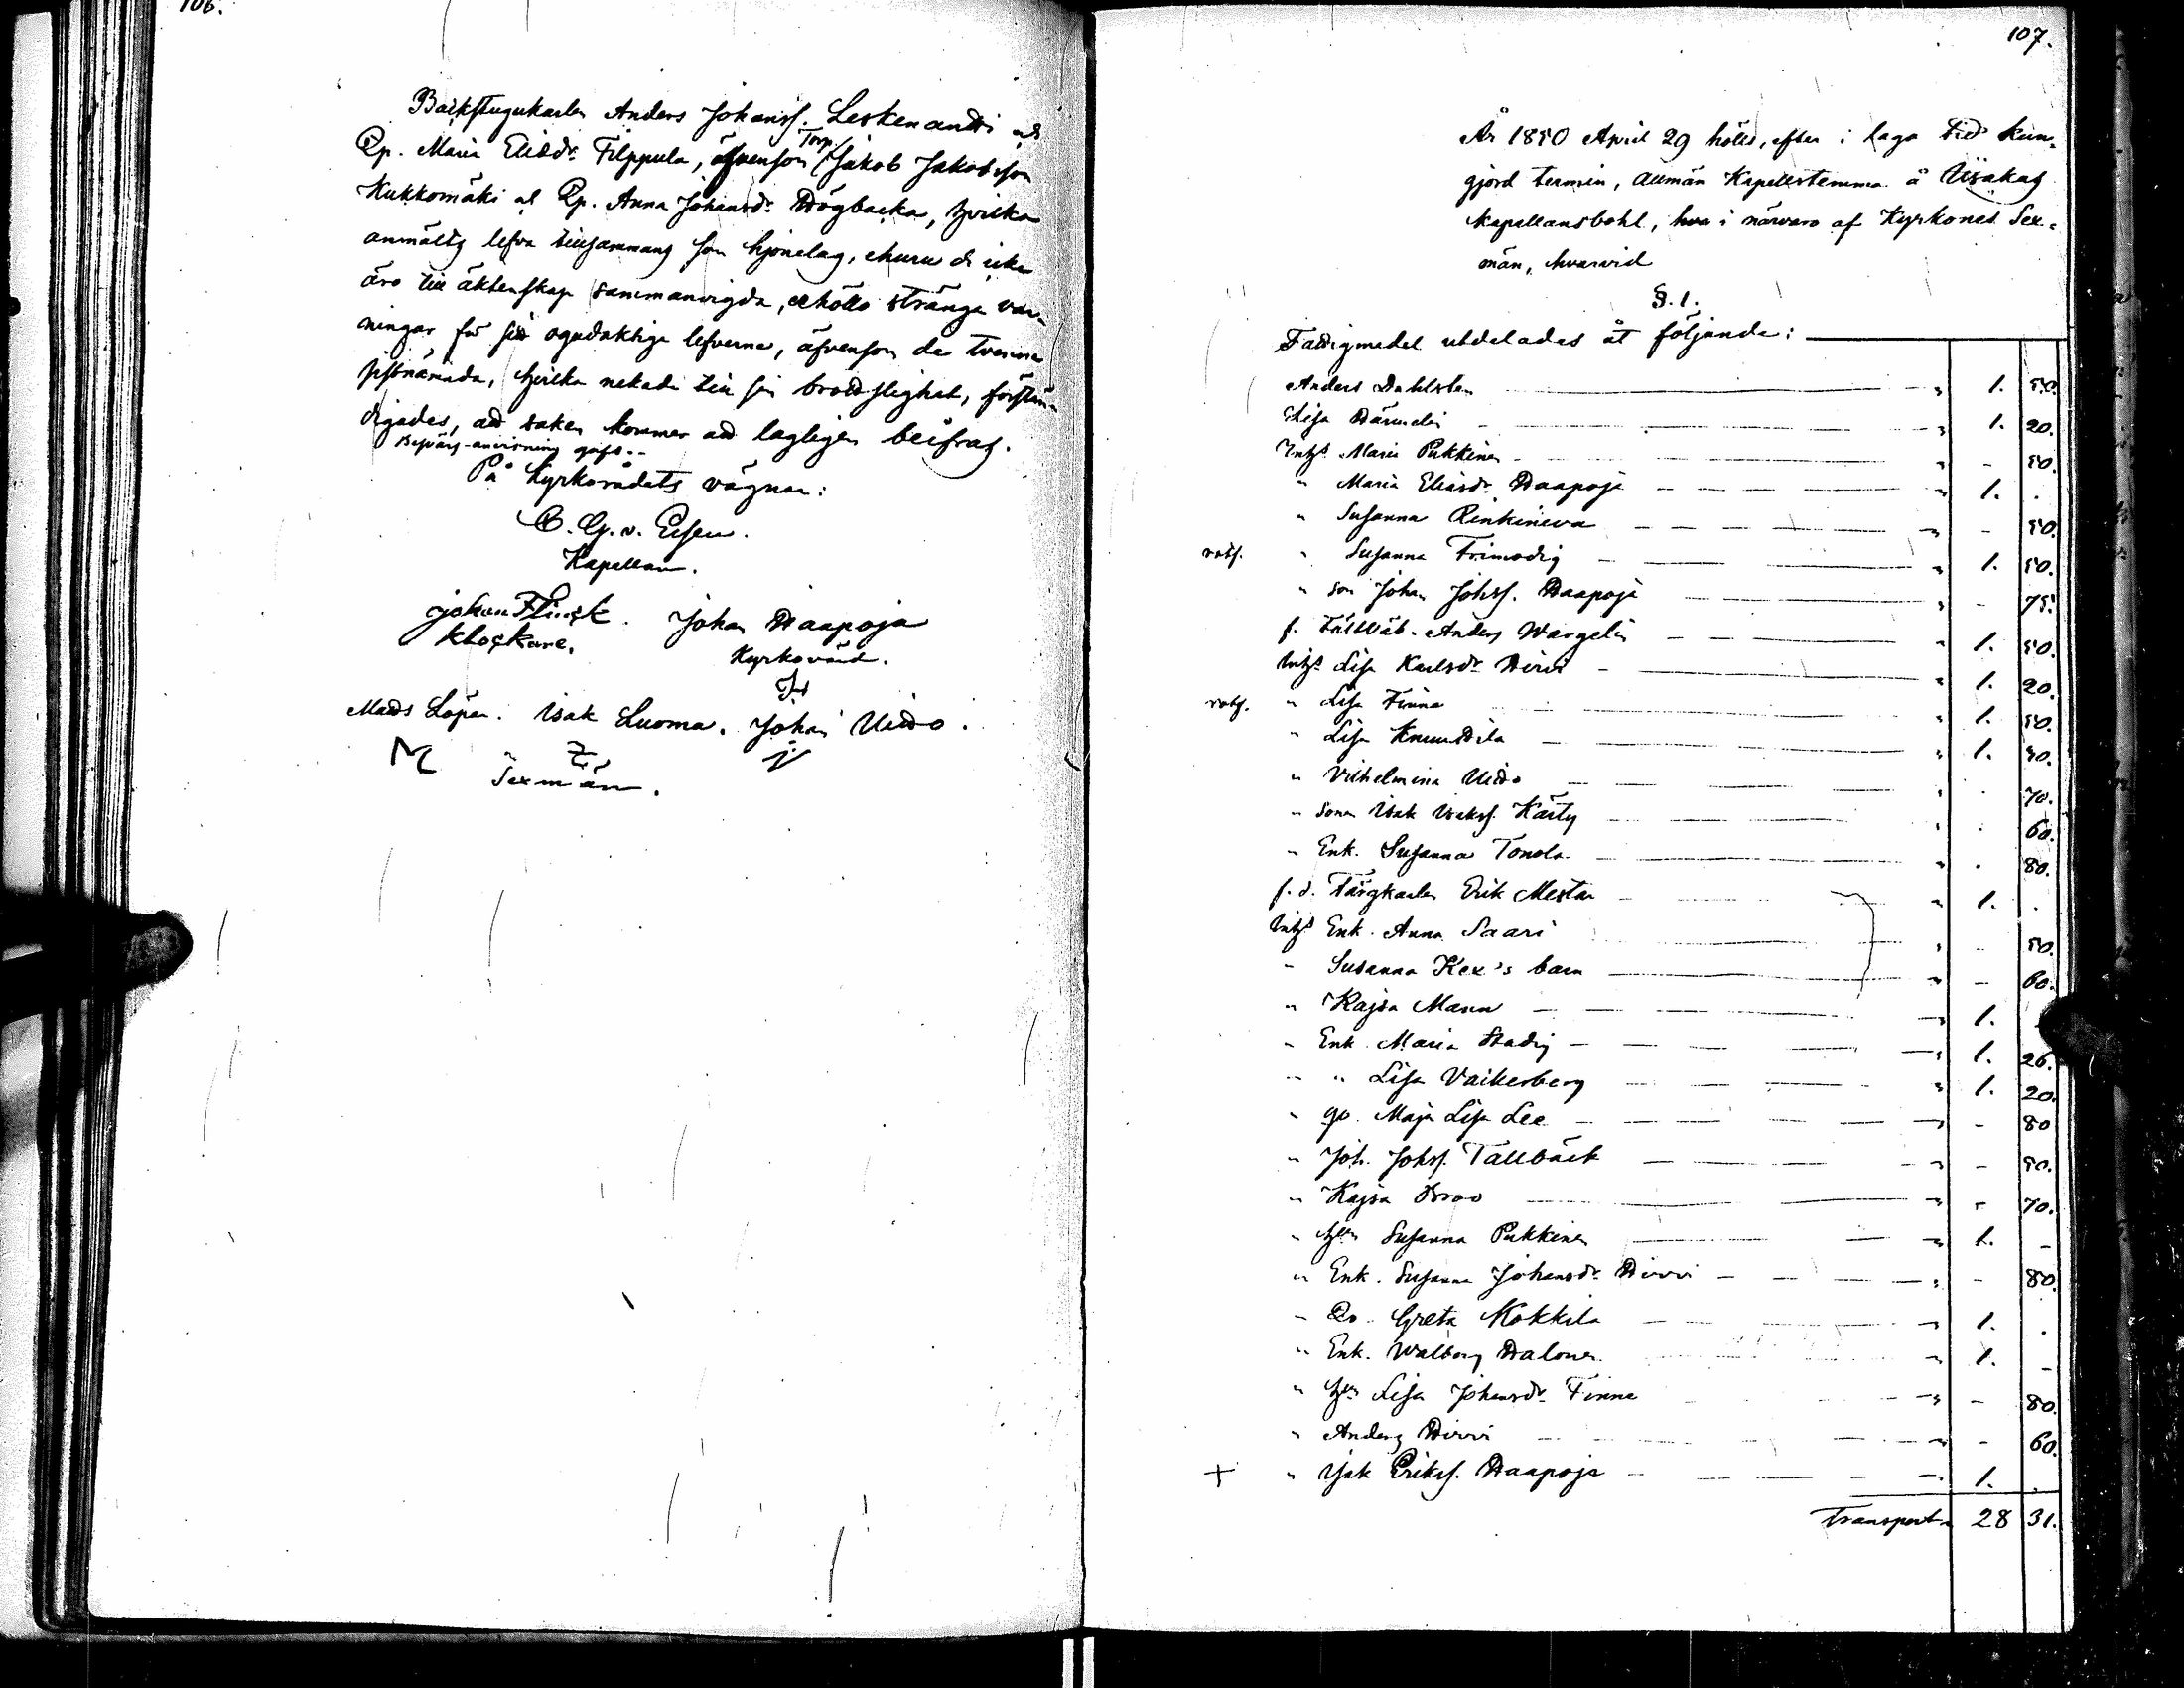 106.
Backstugukarlen Anders Johanss. Leskenantti och
Qp. Maria Eliædr. Filppula, äfvensom Torp. Jakob Jakobsson
Kukkomäki och Qp. Anna Johansdr. Högbacka, hvilka
anmälts lefva tillsammans som hjonelag, ehuru de icke
äro till äktenskap sammanvigda, erhöllo stränga var-
ningar för sitt ogudaktiga lefverne, äfvensom de tvenne
sistnämnda, hvilka nekade till sin brottslighet, förstän-
digades, att saken kommer att lagligen beifras.
Besvärs-anvisning gafs.-
På Kyrkorådets vägnar:
C. G. v. Essen.
Kapellan.
Johan Flinck. Johan Haapoja
klockare. Kyrkovärd.
Matts Löper. Isak Luoma. Johan Uitto.
Sexmän.
107.
År 1850 April 29 hölls, efter i laga tid kun-
gjord termin, allmän Kapellstemma å Ilisakas
Kapellansbohl, hva i närvaro af Kyrkones Sex-
män, hvarvid
§. 1.
Fattigmedel utdelades åt följande:
Anders Dahlsten " 1. 50.
Lisa Härmelin " 1. 20.
Inhs Maria Pukkinen " - 50.
" Maria Eliasdr. Haapoja " 1. .
" Susanna Renkineva " - 50.
rotf. " Susanna Frimodig " 1. 50.
" son Johan Johss. Haapoja " - 75.
f. Fältväb. Anders Wargelin " 1. 50.
Inhs Lisa Karlsdr Hirvi " 1. 20.
rotf. " Lisa Finne " 1. 50.
" Lisa Knuuttila " 1. 40.
" Vilhelmina Uitto " . 70.
" sonen Isak Isakss. Karty " . 60.
" Enk. Susanna Tonola " . 80.
f. d. Färgkarlen Erik Mesta " 1. .
Inhs Enk. Anna Saari " - 50.
" Susanna Kex's barn " - 60.
" Kajsa Mann " 1.
" Enk. Maria Stadig " 1. 26.
" " Lisa Vaikerberg " 1. 20.
" qv. Maja Lisa Lee " - 80
" Joh. Johss. Tallbäck " - 50.
" Kajsa Broo " - 70.
" Susanna Pukkinen " 1. -
" Enk. Susanna Johansdr. Hirvi " - 80.
" Qv. Greta Kokkila " 1. .
" Enk. Walborg Halonen " 1. -
" Lisa Johansdr. Finne " - 80.
" Anders Hirvi " - 60.
+ " Isak Erikss. Haapoja " 1. .
Transport " 28 31.